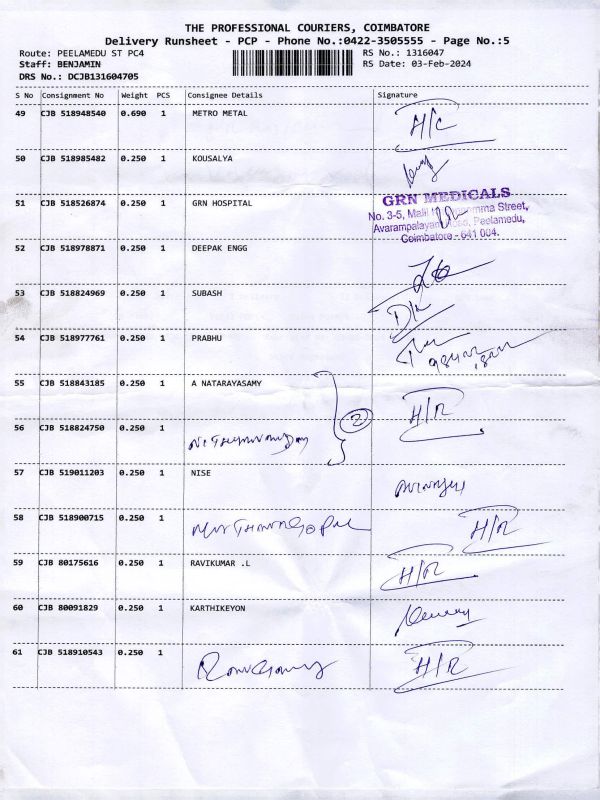 THE PROFESSIONAL COURIERS, COIMBATORE
Delivery Runsheet - PCP - Phone No.:0422-3505555 - Page No.:5
Route: PEELAMEDU ST PC4 RS No.: 1316047
Staff: BENJAMIN RS Date: 03-Feb-2024
DRS No.: DCJB131604705
S No Consignment No Weight PCS Consignee Details Signature
49 CJB 518948540 0.690 1 METRO METAL H/C
50 CJB 518985482 0.250 1 KOUSALYA
51 CJB 518526874 0.250 1 GRN HOSPITAL
GRN MEDICALS
No. 3-5, Street,
Avarampalayam Road, Peelamedu,
Coimbatore - 641 004.
52 CJB 518978871 0.250 1 DEEPAK ENGG
53 CJB 518824969 0.250 1 SUBASH
54 CJB 518977761 0.250 1 PRABHU
55 CJB 518843185 0.250 1 A NATARAYASAMY H/R
2
56 CJB 518824750 0.250 1
57 CJB 519011203 0.250 1 NISE
58 CJB 518900715 0.250 1 H/R
59 CJB 80175616 0.250 1 RAVIKUMAR .L H/R
60 CJB 80091829 0.250 1 KARTHIKEYON
61 CJB 518910543 0.250 1 H/R